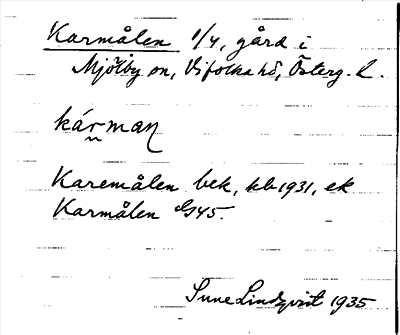 Karmålen 1/4, gård i
Mjölby sn, Vifolka hd, Österg. l.
kárman
Karemålen bek, kb 1931, ek
Karmålen GS45.
Sune Lindqvist 1935